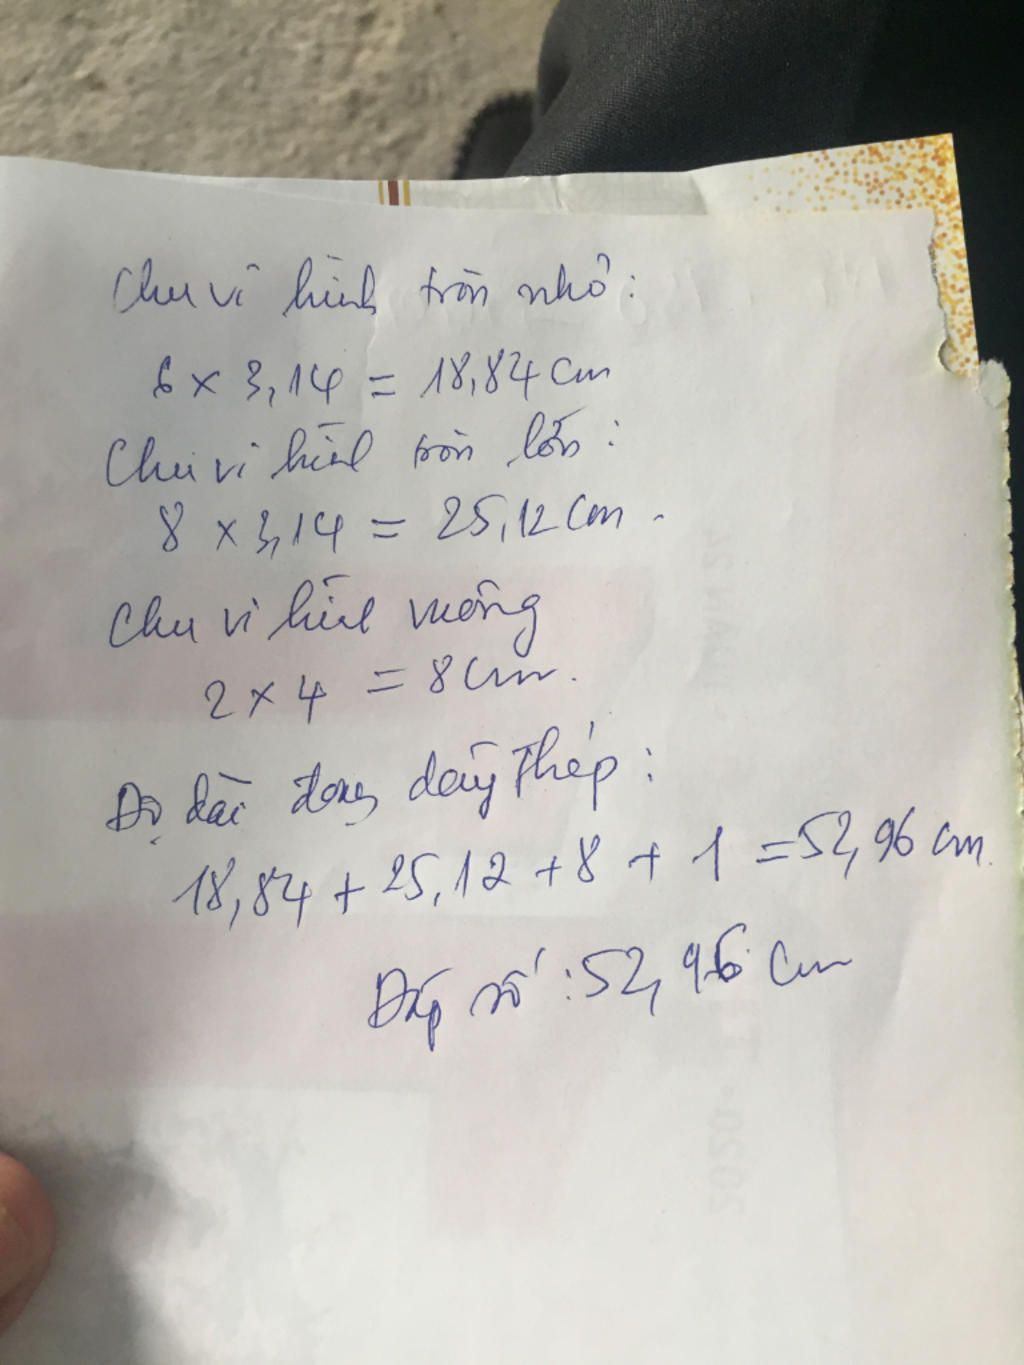 Chu vi hình tròn nhỏ:
6 x 3,14 = 18,84 cm
Chu vi hình tròn lớn:
8 x 3,14 = 25,12 cm.
Chu vi hình vuông
2 x 4 = 8 cm.
Độ dài đoạn dây thép:
18,84 + 25,12 + 8 + 1 = 52,96 cm.
Đáp số: 52,96 cm